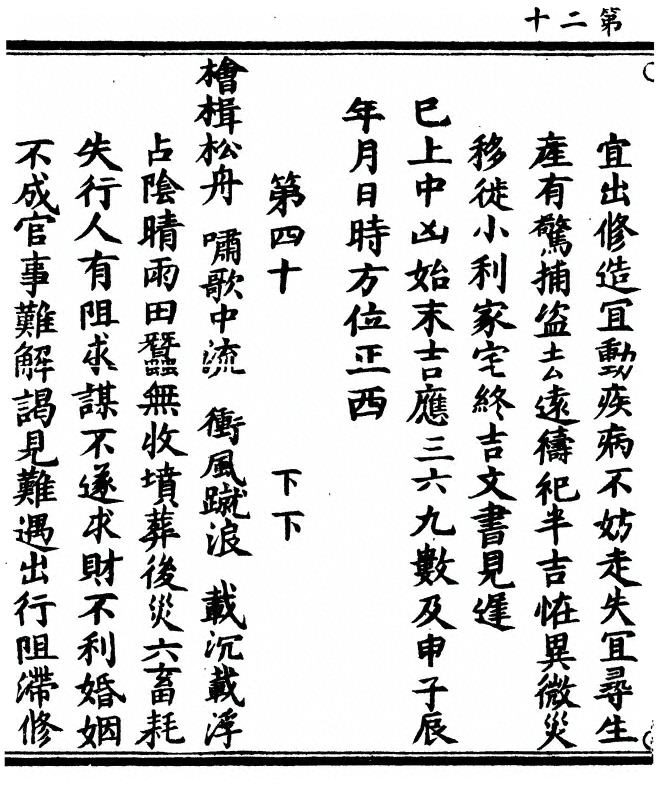 第二十
宜出修造冝動疾病不妨走失冝尋生
產有驚捕盗去遠禱祀半吉恠異微災
移徙小利家宅終吉文書見遲
巳上中凶始末吉應三六九數及申子辰
年月日時方位正西
第四十 下下
檜楫松舟 嘯歌中流 衝風蹴浪 載沉載浮
占陰晴雨田蠶無收墳葬後災六畜耗
失行人有阻求謀不遂求財不利婚姻
不成官事難解謁見難遇出行阻滯修